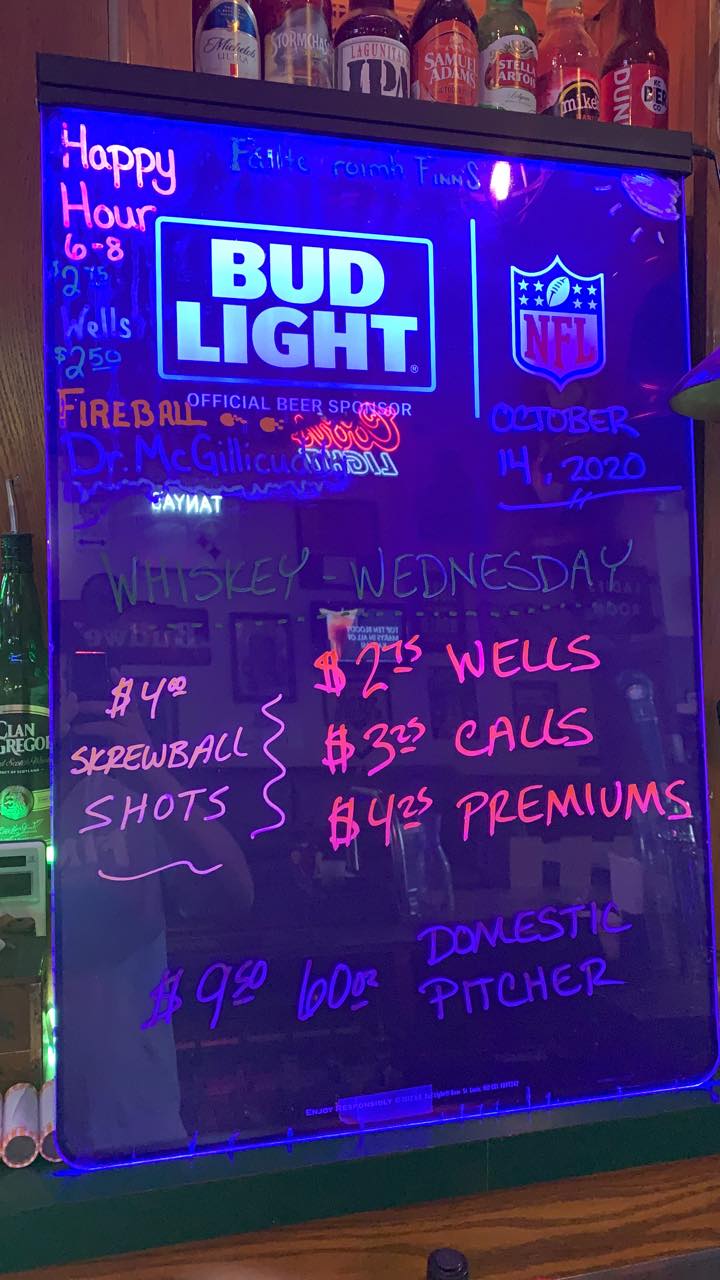 Michelob
ULTRA
STORMCHAS
LAGUNITAS
IPA
SAMUEL
ADAMS
STELLA
ARTOIS
mike's
DUN
Fáilte roimh FINNS
Happy
Hour
6-8
$2.75
Wells
$2.50
FIREBALL
BUD
LIGHT
®
OFFICIAL BEER SPONSOR
NFL
OCTOBER
14, 2020
WHISKEY-WEDNESDAY
$4.00
SKREWBALL
SHOTS
$2.75 WELLS
$3.25 CALLS
$4.25 PREMIUMS
$9.50 60oz DOMESTIC
PITCHER
CLAN
GREGOR
ENJOY RESPONSIBLY